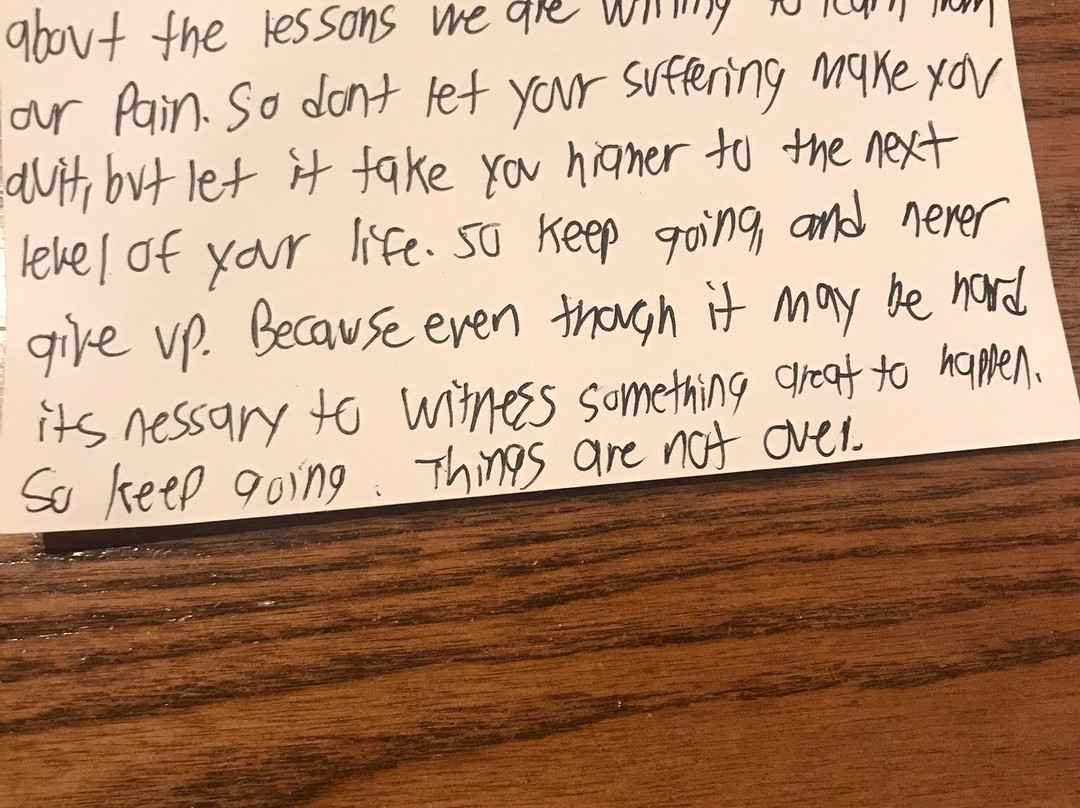 about the lessons we are willing to learn from
our Pain. So dont let your suffering make you
quit, but let it take you higher to the next
level of your life. so keep going, and never
give up. Because even though it may be hard
its nessary to witness something great to happen.
So keep going. Things are not over.